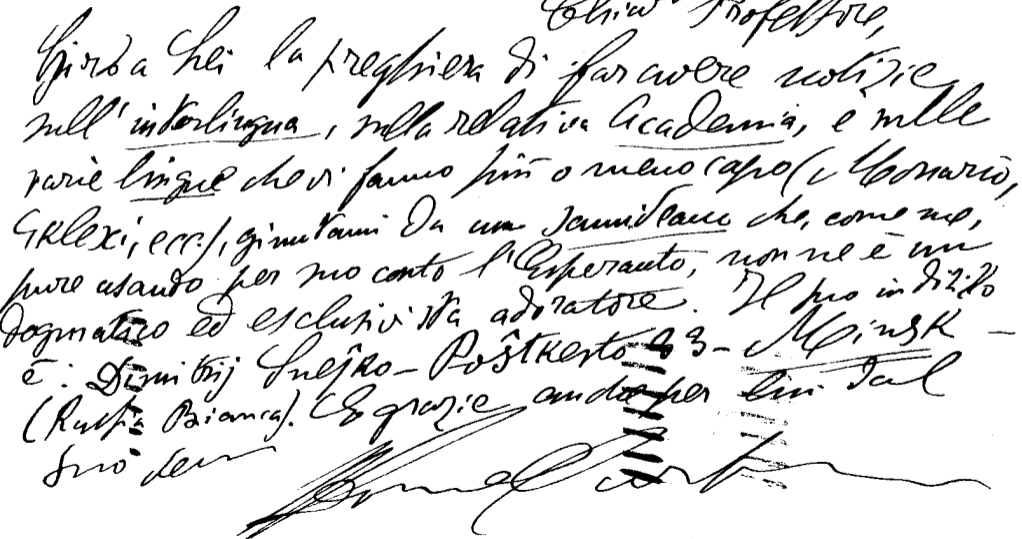 Chiar.mo Professore,
Giro a Lei la preghiera di far avere notizie
sull'interlingua, sulla relativa Academia, e sulle
varie lingue che vi fanno più o meno capo (Monario,
etc.), giuntami da un samideano che, come me,
pure usando per suo conto l'Esperanto, non ne è un
dogmatico ed esclusivista adoratore. Il suo indirizzo
è: Dimitrij Snejko – Poŝtkesto 23 – Minsk –
(Russia Bianca). E grazie, anche per lui dal
Suo